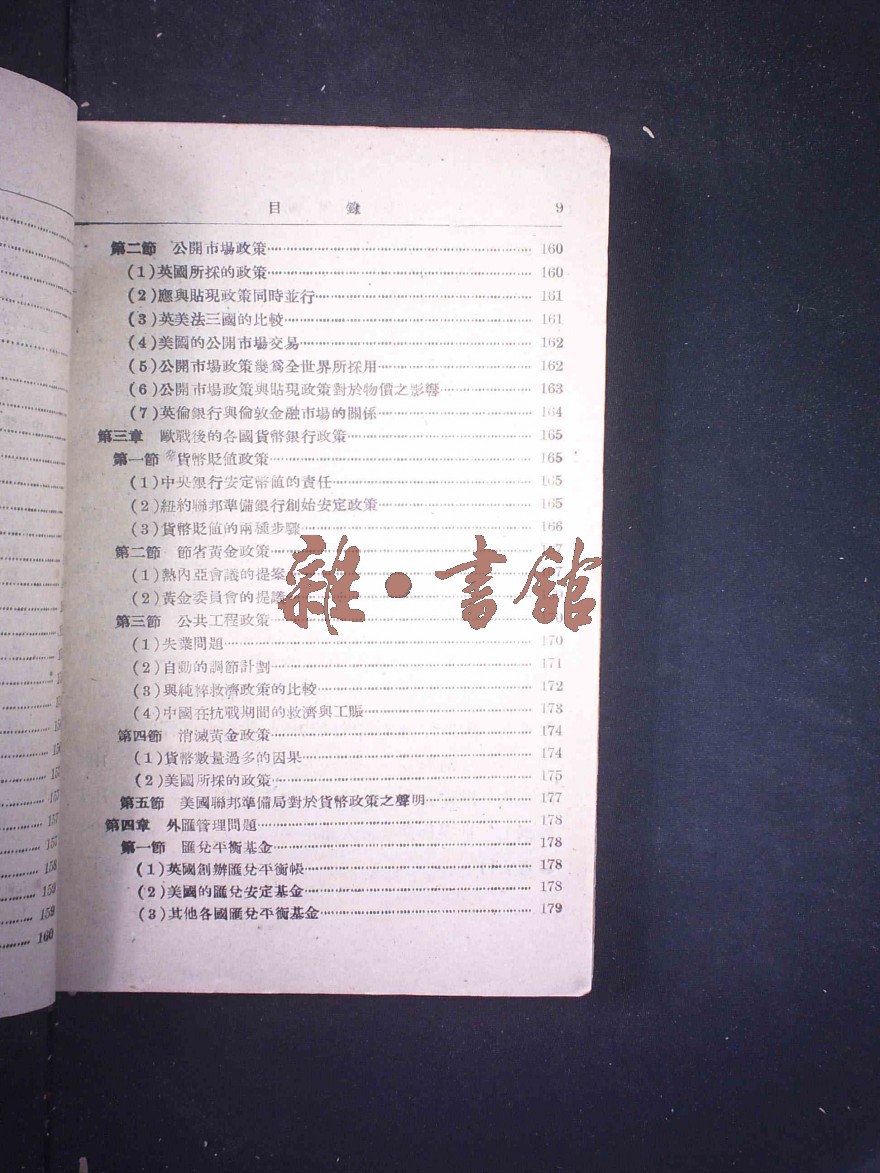 目 錄 9
第二節 公開市場政策 160
(1)英國所採的政策 160
(2)應與貼現政策同時並行 161
(3)英美法三國的比較 161
(4)美國的公開市場交易 162
(5)公開市場政策幾爲全世界所採用 162
(6)公開市場政策與貼現政策對於物價之影響 163
(7)英倫銀行與倫敦金融市場的關係 164
第三章 歐戰後的各國貨幣銀行政策 165
第一節 貨幣貶値政策 165
(1)中央銀行安定幣値的責任 165
(2)紐約聯邦準備銀行創始安定政策 165
(3)貨幣貶値的兩種步驟 166
第二節 節省黃金政策
(1)熱內亞會議的提案
(2)黃金委員會的提議
第三節 公共工程政策
(1)失業問題 170
(2)自動的調節計劃 171
(3)與純粹救濟政策的比較 172
(4)中國在抗戰期間的救濟與工賑 173
第四節 消滅黃金政策 174
(1)貨幣數量過多的因果 174
(2)美國所採的政策 175
第五節 美國聯邦準備局對於貨幣政策之聲明 177
第四章 外匯管理問題 178
第一節 匯兌平衡基金 178
(1)英國創辦匯兌平衡帳 178
(2)美國的匯兌安定基金 178
(3)其他各國匯兌平衡基金 179
雜·書館
157
157
157
158
159
159
160